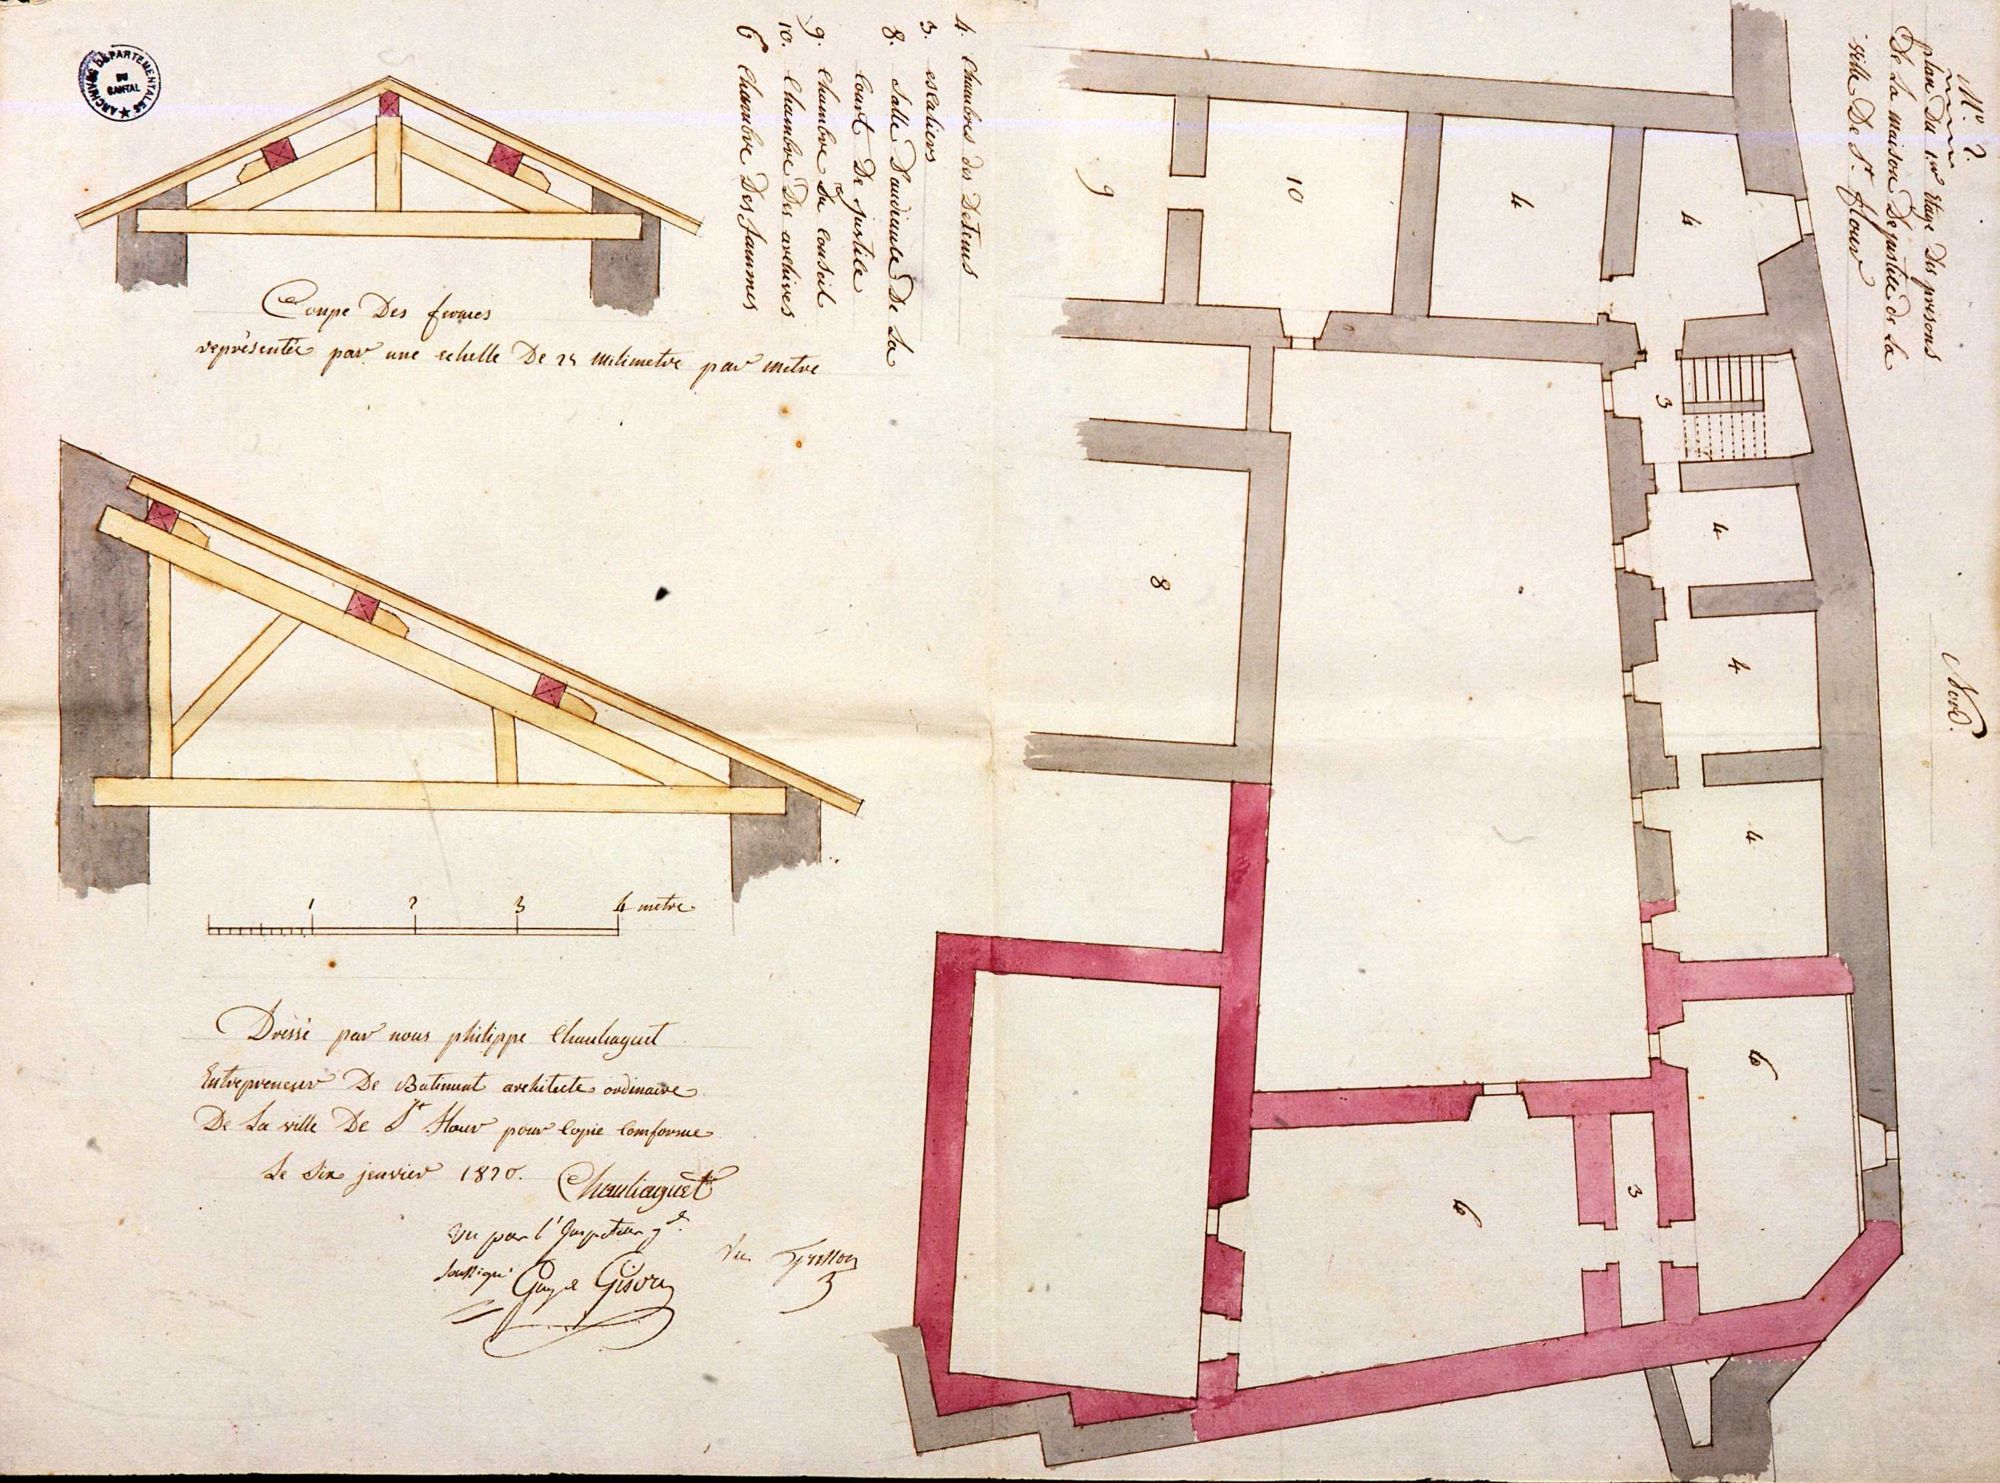 N.º 2.
plan Du 1.er etage Des prisons
De La maison De justice de La
ville De S.t flour
Nord.
4. Chambres des Detenus
3. escaliers
8. Salle D'audiance De La
Court De justice
9. Chambre Du Conseil
10. Chambre Des archives
6 Chambre Des fammes
ARCHIVES DÉPARTEMENTALES
DU
CANTAL
Coupe Des fermes
représentée par une echelle De 25 milimetre par metre
1 2 3 4 metre
Dressé par nous philippe Chauliaguet
Entrepreneur De Batiment architecte ordinaire
De La ville De S.t flour pour Copie Comforme
Le Six jenvier 1820.
Chauliaguet
Vu par l'Inspecteur g.al
soussigné
Guy de Gisors
Vu
9
10
4
4
3
4
4
4
8
6
6
3